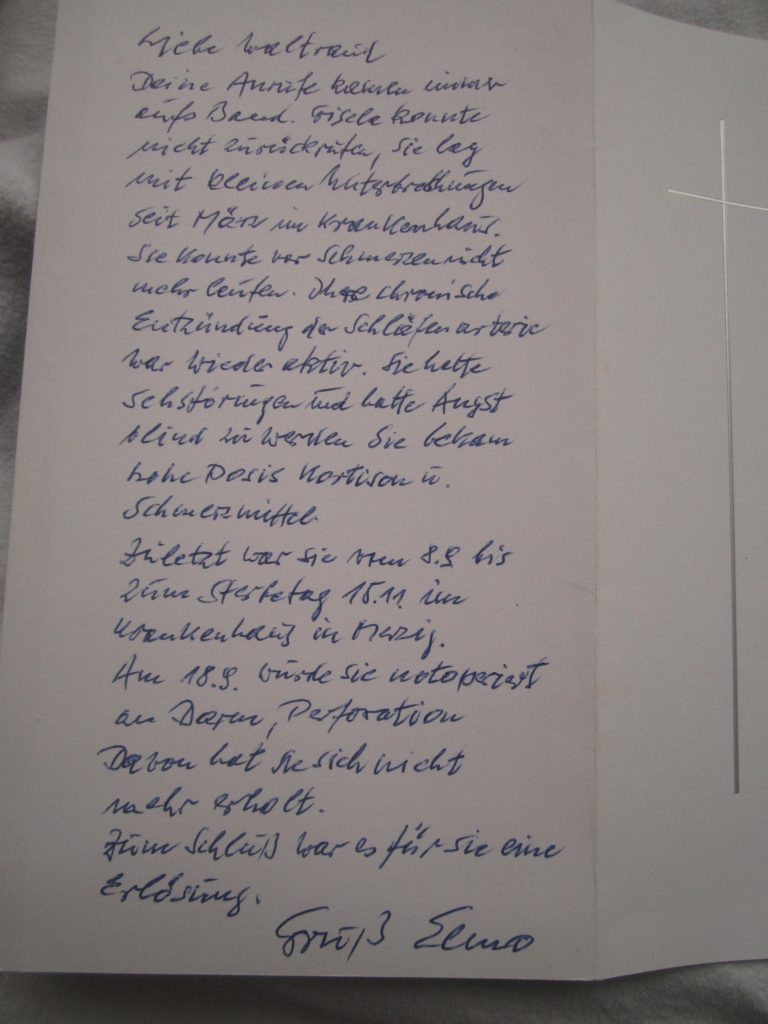 Liebe Waltraud
Deine Anrufe kamen immer
aufs Band. Gisela konnte
nicht zurückrufen, Sie lag
mit kleinen Unterbrechungen
seit März im Krankenhaus.
Sie konnte vor Schmerzen nicht
mehr laufen. Ihre chronische
Entzündung der Schläfenarterie
war wieder aktiv. Sie hatte
Sehstörungen und hatte Angst
blind zu werden Sie bekam
hohe Dosis Kortison u.
Schmerzmittel
Zuletzt war sie vom 8.9 bis
zum Sterbetag 15.11. im
Krankenhaus in Merzig.
Am 18.9. wurde sie notoperiert
an Darm, Perforation
Davon hat sie sich nicht
mehr erholt.
Zum Schluß war es für sie eine
Erlösung.
Gruß Elmo